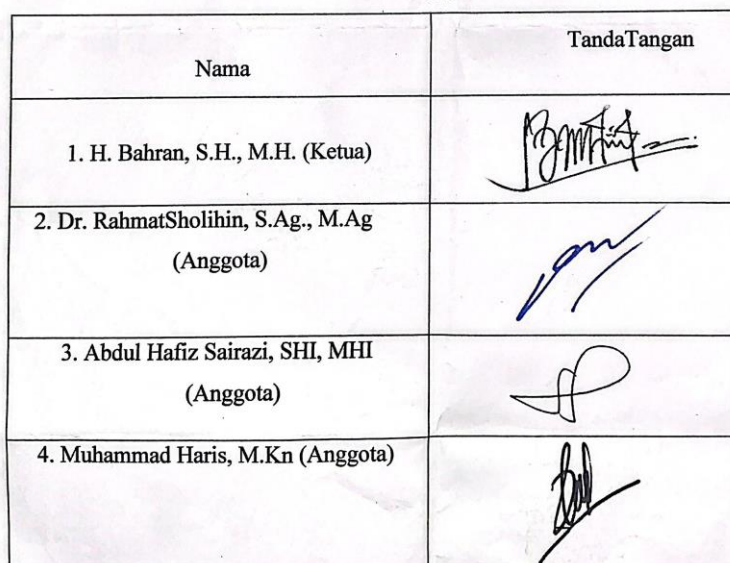 Nama
TandaTangan
1. H. Bahran, S.H., M.H. (Ketua)
2. Dr. RahmatSholihin, S.Ag., M.Ag
(Anggota)
3. Abdul Hafiz Sairazi, SHI, MHI
(Anggota)
4. Muhammad Haris, M.Kn (Anggota)